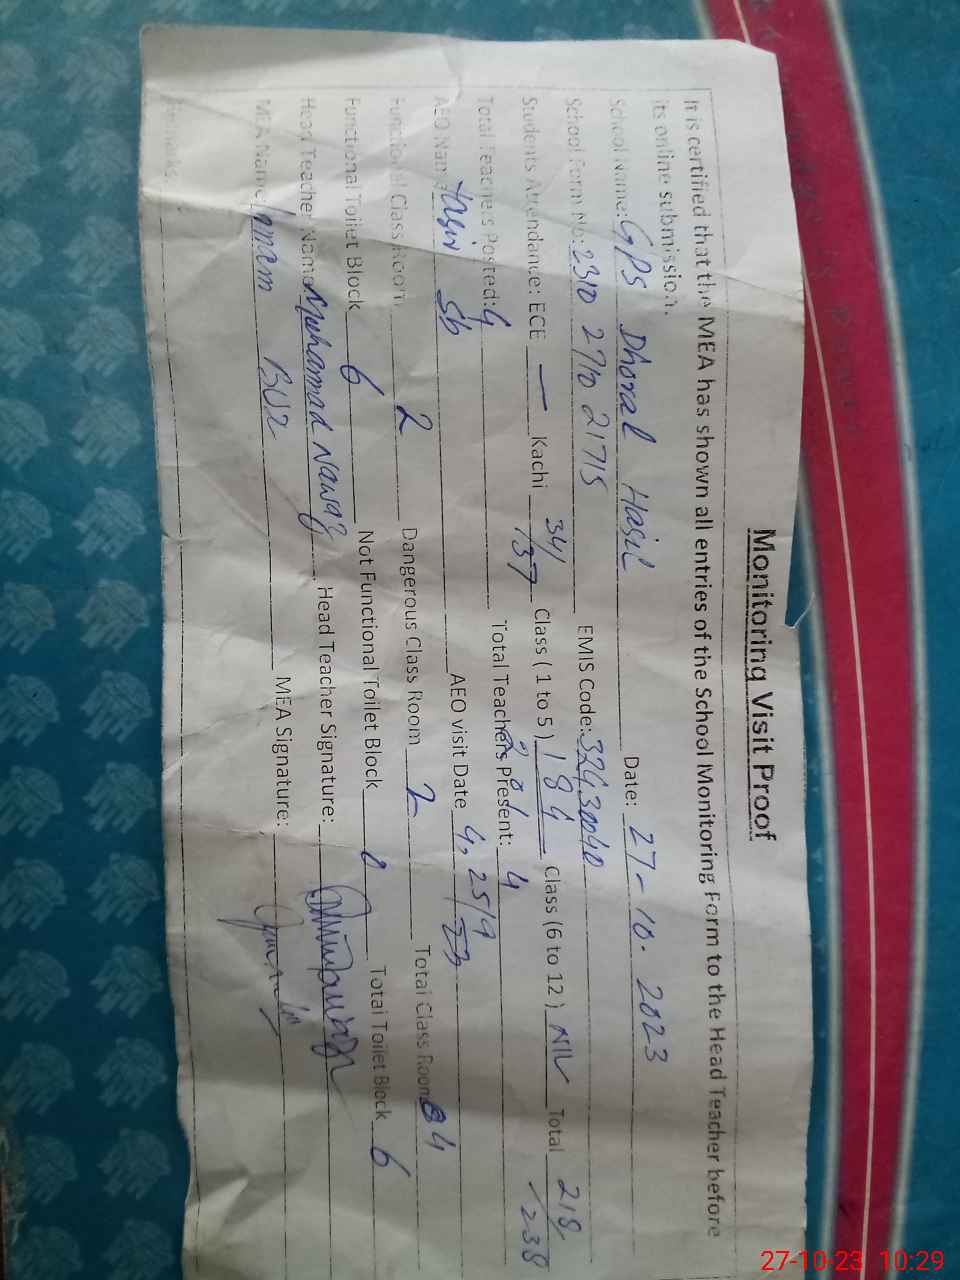 Monitoring Visit Proof
It is certified that the MEA has shown all entries of the School Monitoring Form to the Head Teacher before
its online submission.
School Name: GPS Dhoral Hasil Date: 27-10.2023
School Form No: 2310 2710 21715 EMIS Code: 32430040
Students Attendance: ECE — Kachi 34/37 Class ( 1 to 5 ) 184 Class (6 to 12 ) NIL Total 218/238
Total Teachers Posted: 4 Total Teachers Present: 4
AEO Name Yasir Sb AEO visit Date 4, 25/9
Functional Class Room 2 Dangerous Class Room 2 Total Class Room 4
Functional Toilet Block 6 Not Functional Toilet Block 0 Total Toilet Block 6
Head Teacher Name Muhammad Nawaz Head Teacher Signature:
MEA Name: MEA Signature:
Remarks:
27-10-23 10:29